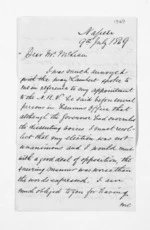 Napier
9th July 1869
Dear Mr. McLean
I was much annoyed
with the way Lambert spoke to
me in reference to my appointment
to the N. R. V. He said before several
persons in Tanner's Office that
although the Governor had overruled
the dissenting voices I must recol-
lect that my election was not
unanimous and I would meet
with a good deal of opposition, the
sneering manner was worse than
the words expressed. I am
much obliged to you for having